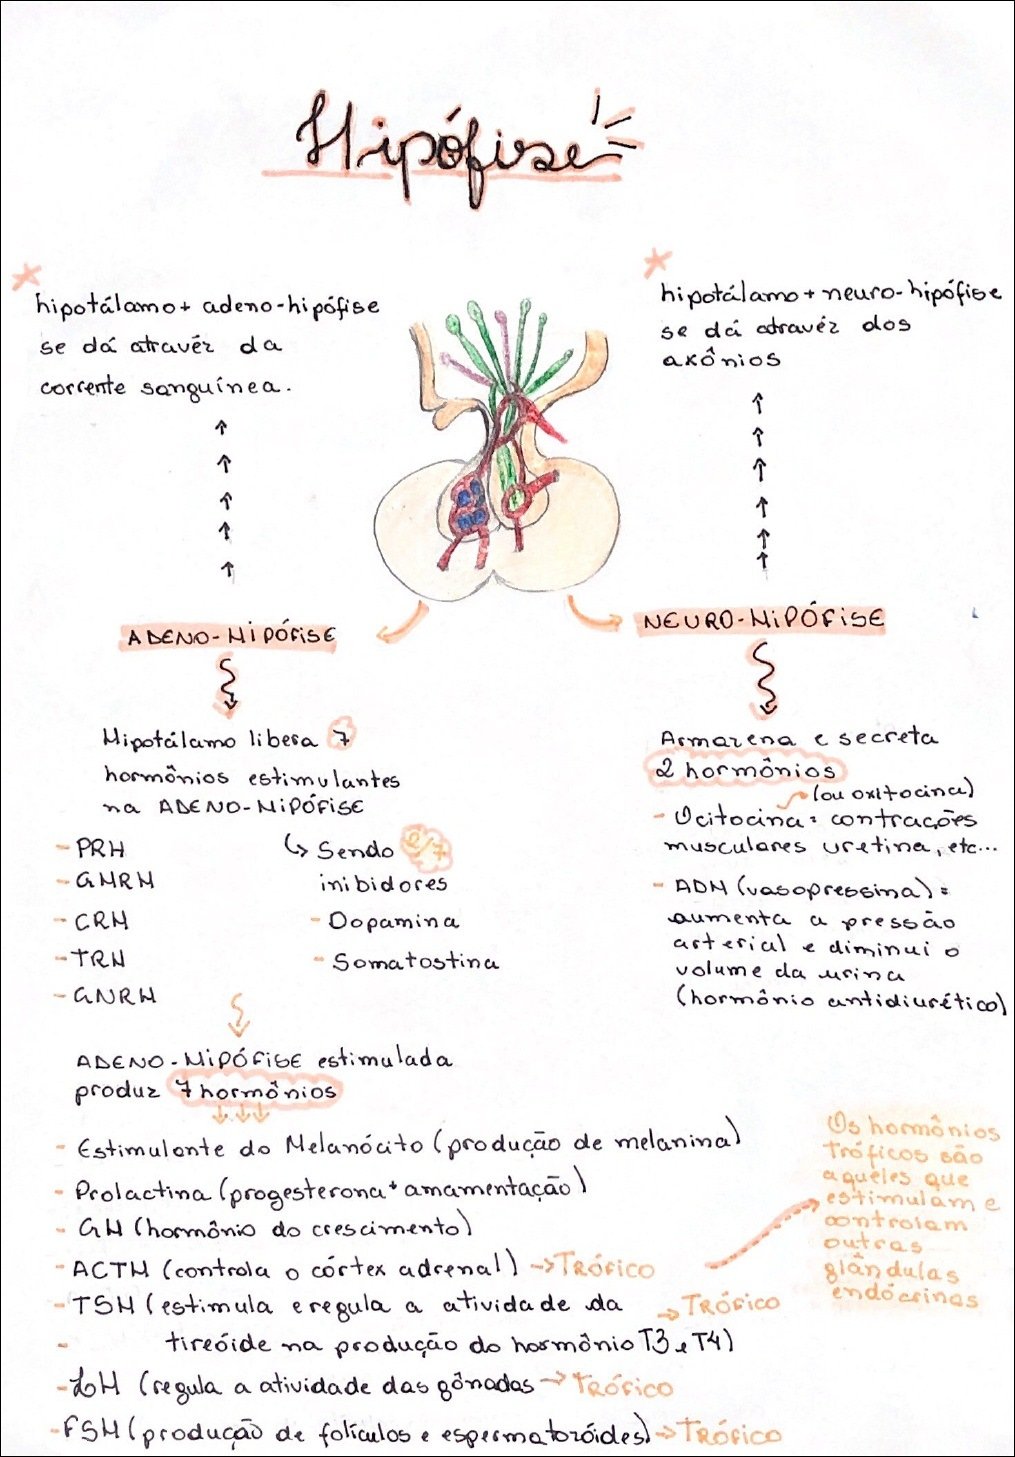 Hipófise
hipotálamo + adeno-hipófise
se dá atravéz da
corrente sanguínea.
hipotálamo + neuro-hipófise
se dá atravéz dos
axônios
ADENO-HIPÓFISE
NEURO-HIPÓFISE
Hipotálamo libera 7
hormônios estimulantes
na ADENO-HIPÓFISE
- PRH
- GHRH
- CRH
- TRH
- GNRH
↳ Sendo 2/7
inibidores
- Dopamina
- Somatostina
Armazena e secreta
2 hormônios
(ou oxitocina)
- Ocitocina: contrações
musculares uretina, etc...
- ADH (vasopressina) =
aumenta a pressão
arterial e diminui o
volume da urina
(hormônio antidiurético)
ADENO-HIPÓFISE estimulada
produz 7 hormônios
- Estimulante do Melanócito (produção de melanina)
- Prolactina (progesterona + amamentação)
- GH (hormônio do crescimento)
- ACTH (controla o córtex adrenal) → TRÓFICO
- TSH (estimula e regula a atividade da → TRÓFICO
- tireóide na produção do hormônio T3 e T4)
- LH (regula a atividade das gônadas → TRÓFICO
- FSH (produção de folículos e espermatozóides) → TRÓFICO
Os hormônios
tróficos são
aqueles que
estimulam e
controlam
outras
glândulas
endócrinas